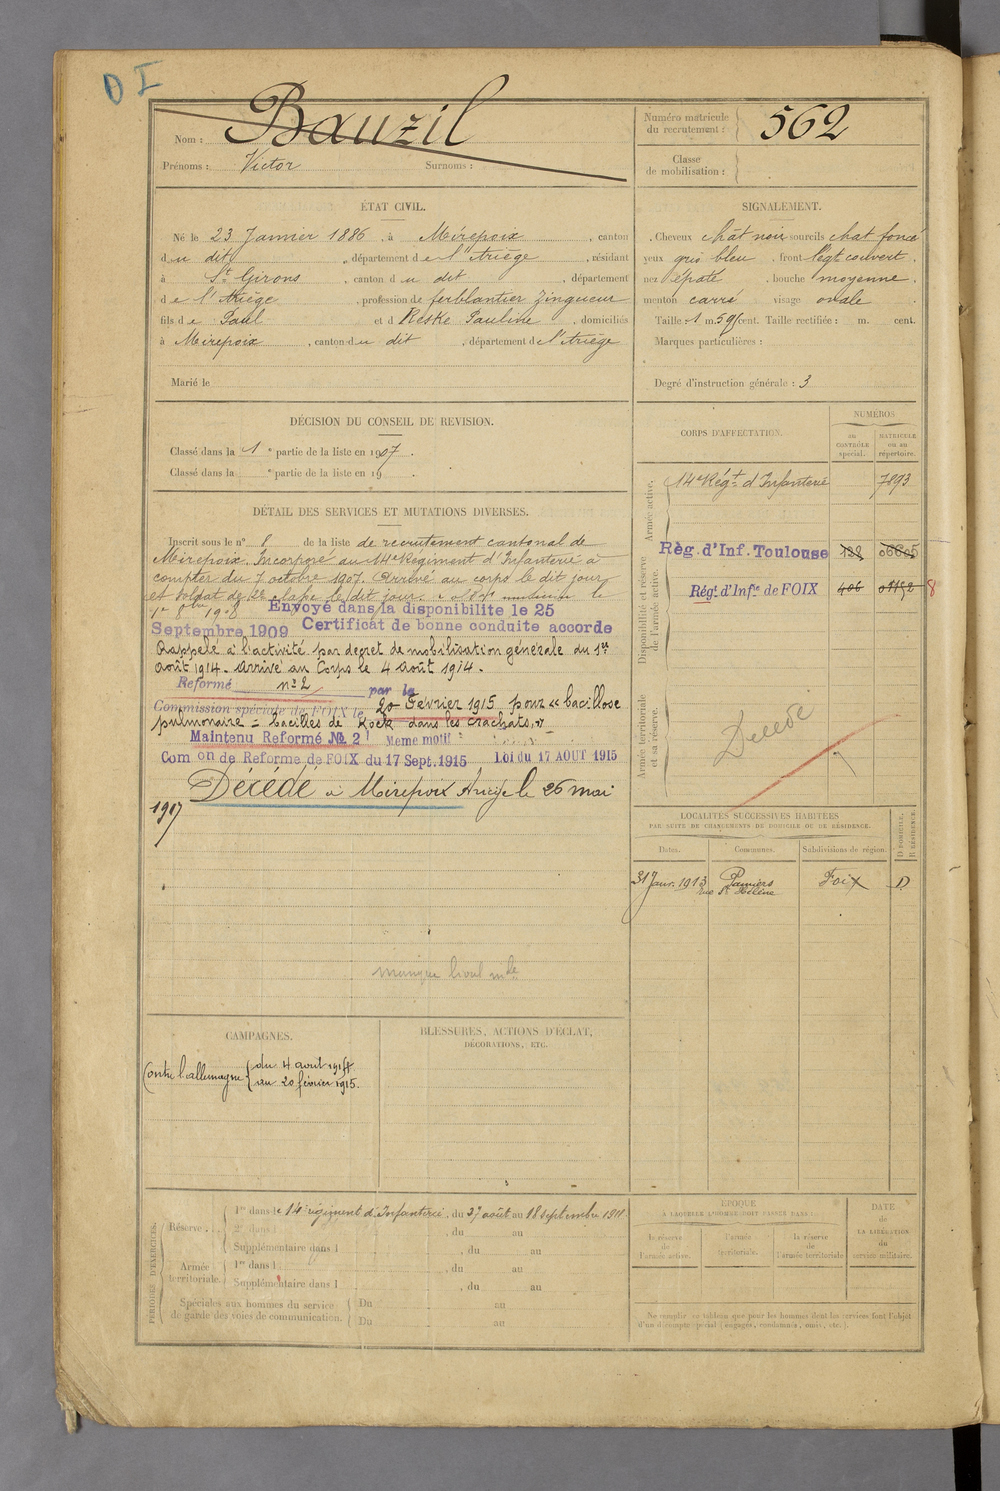 D I
Nom : Bauzil
Prénoms : Victor Surnoms :
Numéro matricule du recrutement : 562
Classe de mobilisation :
ÉTAT CIVIL.
Né le 23 Janvier 1886, à Mirepoix, canton
du dit, département de l'Ariège, résidant
à St Girons, canton du dit, département
de l'Ariège, profession de ferblantier zingueur
fils de Paul et d Reske Pauline, domiciliés
à Mirepoix, canton du dit, département de l'Ariège
Marié le
SIGNALEMENT.
Cheveux chât noir sourcils chat foncé
yeux gris bleu, front légt couvert,
nez épaté, bouche moyenne,
menton carré visage ovale
Taille : 1 m. 59 cent. Taille rectifiée : m. cent.
Marques particulières :
Degré d'instruction générale : 3
DÉCISION DU CONSEIL DE REVISION.
Classé dans la 1e partie de la liste en 1907.
Classé dans la e partie de la liste en 19 .
DÉTAIL DES SERVICES ET MUTATIONS DIVERSES.
Inscrit sous le n° 8 de la liste de recrutement cantonal de
Mirepoix. Incorporé au 14e Régiment d'Infanterie à
compter du 7 octobre 1907. Arrivé au corps le dit jour
et soldat de 2e classe le dit jour. le
1er 8bre 1908 Envoyé dans la disponibilite le 25
Septembre 1909 Certificat de bonne conduite accorde
Rappelé à l'activité par decret de mobilisation générale du 1er
Août 1914. Arrivé au Corps le 4 Août 1914.
Reformé n° 2 par la
Commission spéciale de FOIX le 20 Février 1915 pour « bacillose
pulmonaire = bacilles de Kock dans les crachats. »
Maintenu Reformé № 2 Meme motif
Com on de Reforme de FOIX du 17 Sept. 1915 Loi du 17 AOUT 1915
Décédé à Mirepoix Ariège le 26 mai
1917
manque livret
CORPS D'AFFECTATION.
NUMÉROS
au CONTRÔLE spécial.
MATRICULE ou au répertoire.
Armée active.
14e Régt d'Infanterie 7893
Disponibilité et réserve de l'armée active.
Règ. d'Inf. Toulouse 128 06605
Régt d'Infie de FOIX 406 01152 8
Armée territoriale et sa réserve.
Décédé
LOCALITÉS SUCCESSIVES HABITÉES
PAR SUITE DE CHANGEMENTS DE DOMICILE OU DE RÉSIDENCE.
Dates. Communes. Subdivisions de région. D DOMICILE. R RÉSIDENCE.
31 Janv. 1913 Pamiers Foix D
rue Ste Hélène
CAMPAGNES.
Contre l'allemagne { du 4 août 1914
au 20 février 1915.
BLESSURES, ACTIONS D'ÉCLAT,
DÉCORATIONS, ETC.
PÉRIODES D'EXERCICES.
Réserve . . 1re dans le 14e régiment d'Infanterie, du 27 août au 18 septembre 1911
2e dans l , du au
Supplémentaire dans l , du au
Armée territoriale. 1re dans l , du au
Supplémentaire dans l , du au
Spéciales aux hommes du service Du au
de garde des voies de communication. Du au
ÉPOQUE
A LAQUELLE L'HOMME DOIT PASSER DANS :
la réserve de l'armée active.
l'armée territoriale.
la réserve de l'armée territoriale
DATE de LA LIBÉRATION du service militaire.
Ne remplir ce tableau que pour les hommes dont les services font l'objet
d'un décompte spécial (engagés, condamnés, omis, etc.).